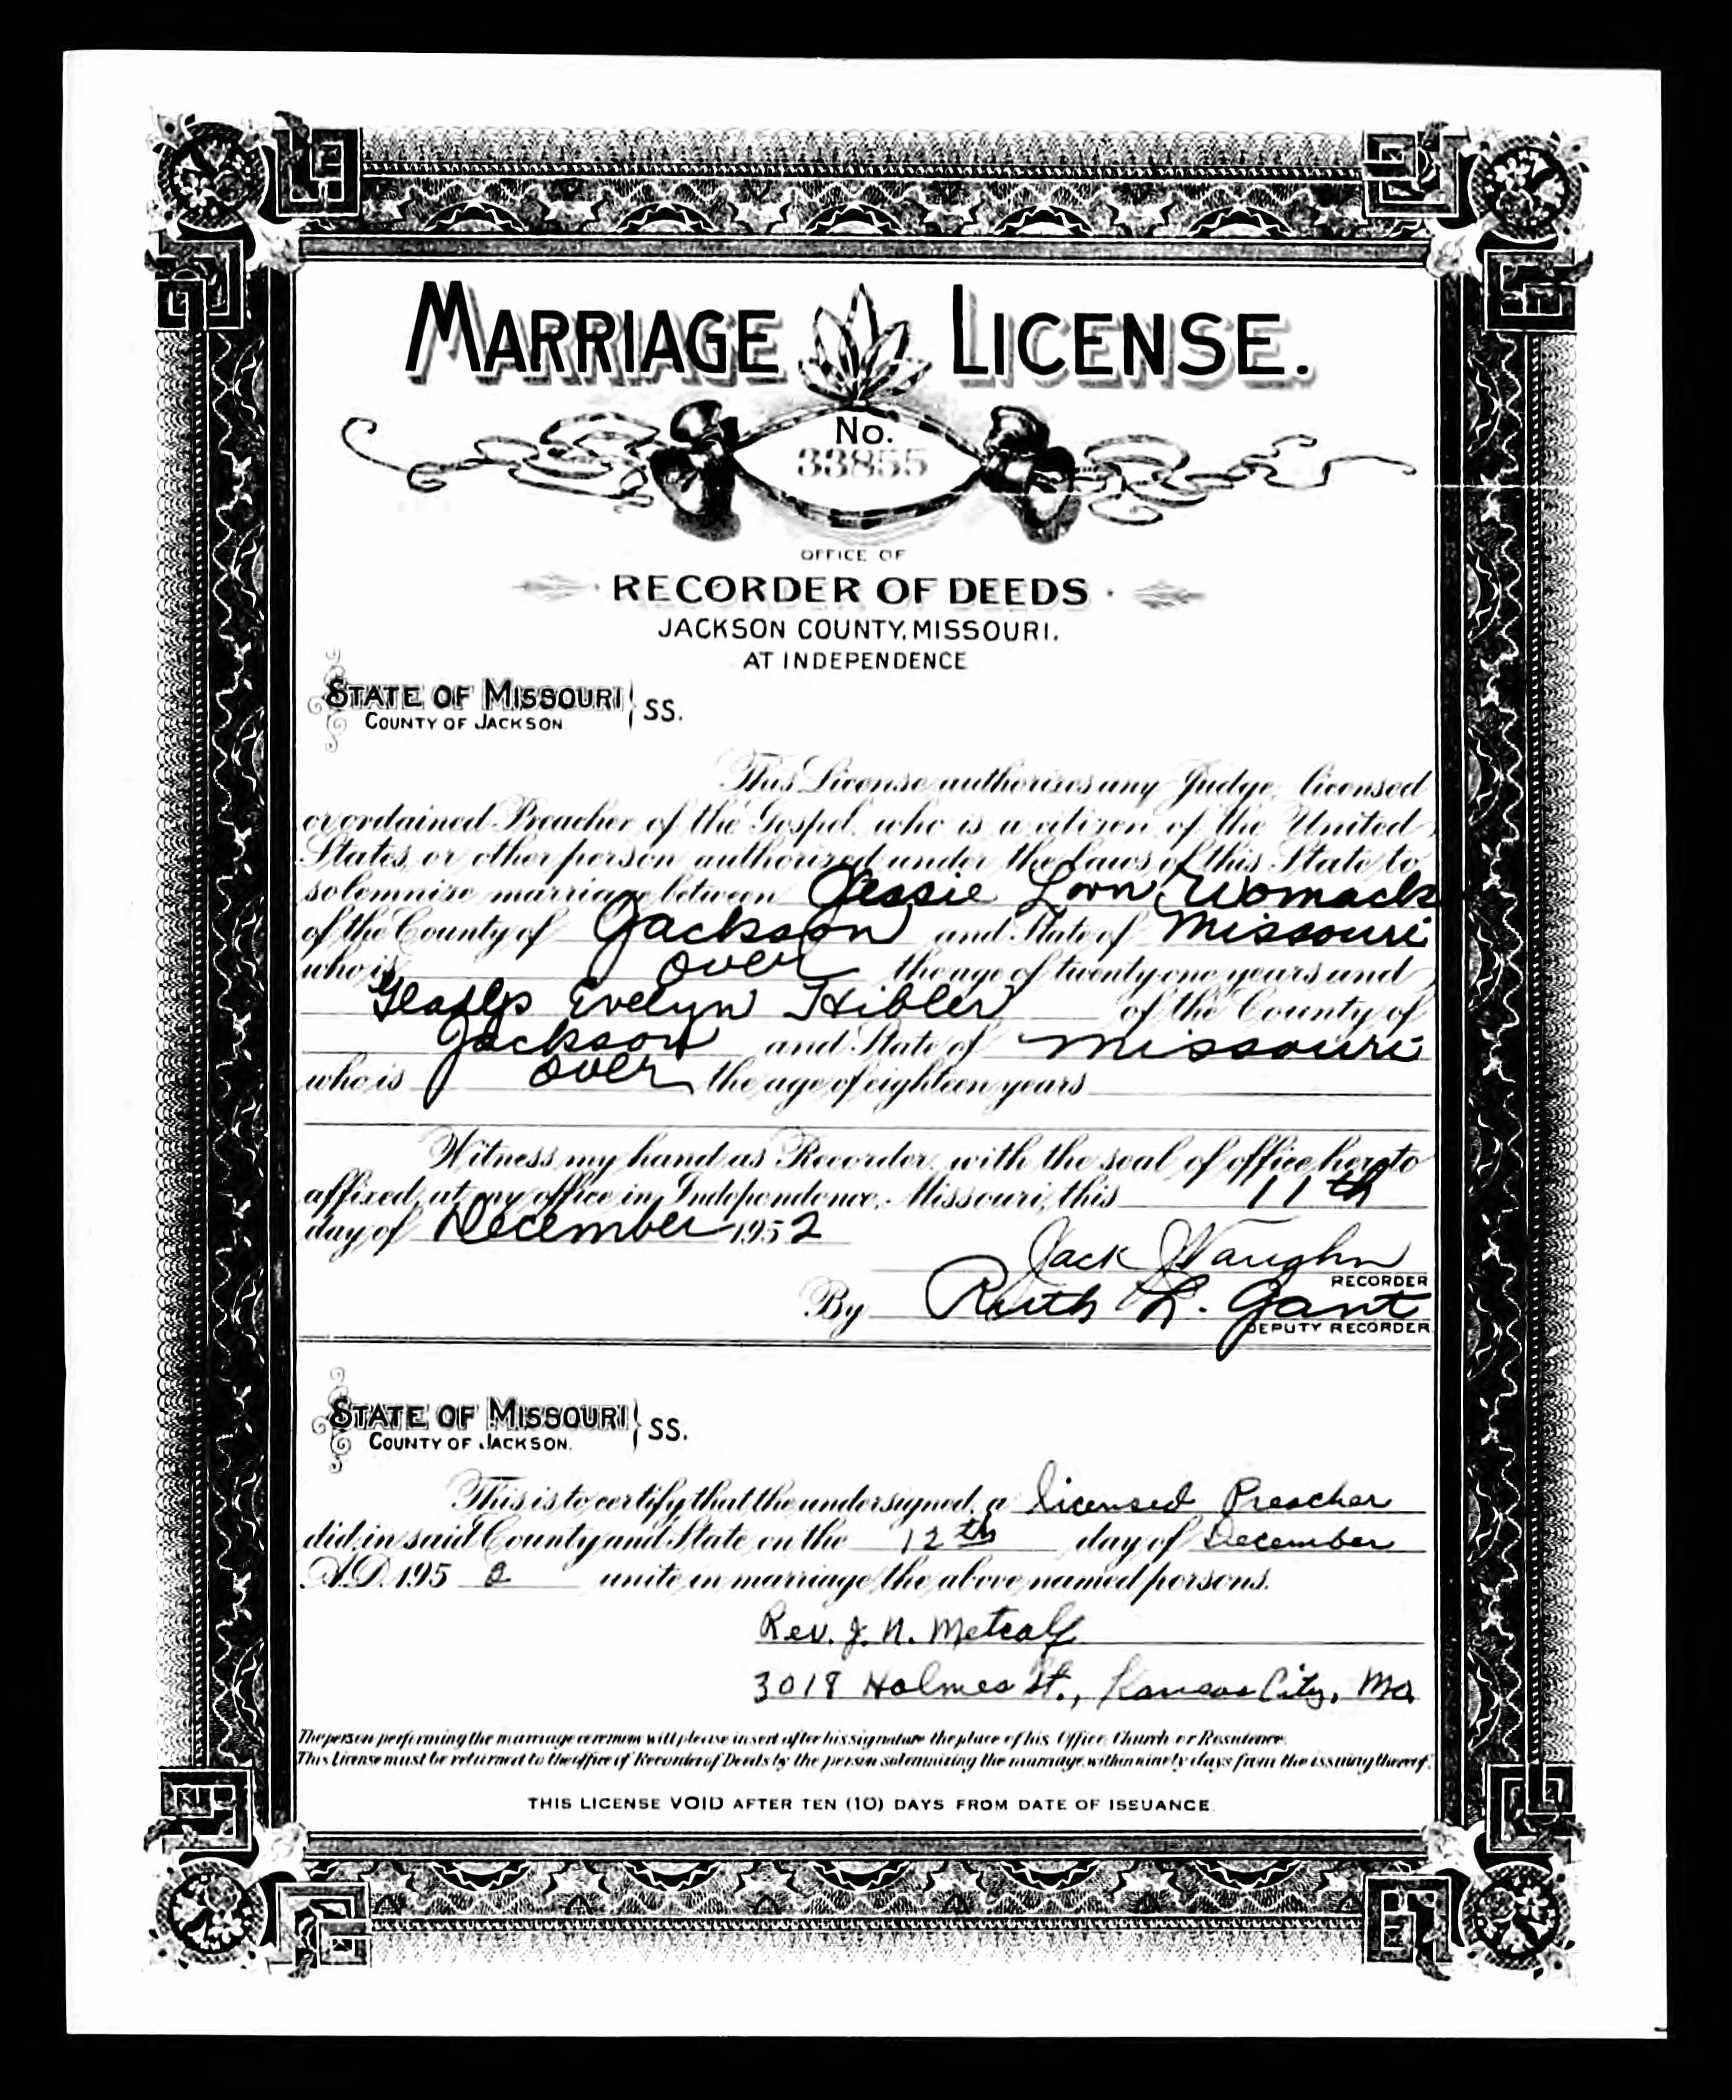 MARRIAGE LICENSE.
No.
33855
OFFICE OF
RECORDER OF DEEDS
JACKSON COUNTY, MISSOURI.
AT INDEPENDENCE
STATE OF MISSOURI } SS.
COUNTY OF JACKSON
This License authorizes any Judge, licensed
or ordained Preacher of the Gospel, who is a citizen of the United
States, or other person authorized under the Laws of this State to
solemnize marriage between Jessie Lorn Womack
of the County of Jackson and State of Missouri
who is over the age of twenty-one years and
Gladys Evelyn Hibler of the County of
Jackson and State of Missouri
who is over the age of eighteen years
Witness my hand as Recorder, with the seal of office hereto
affixed, at my office in Independence, Missouri, this 11th
day of December 1952
Jack Vaughn
RECORDER
By Ruth L. Gant
DEPUTY RECORDER
STATE OF MISSOURI } SS.
COUNTY OF JACKSON.
This is to certify that the undersigned, a licensed Preacher
did, in said County and State, on the 12th day of December
A.D. 195 2 unite in marriage the above named persons.
Rev. J. N. Metcalf
3018 Holmes St., Kansas City, Mo.
The person performing the marriage ceremony will please insert after his signature the place of his Office, Church or Residence.
This License must be returned to the office of Recorder of Deeds by the person solemnizing the marriage, within ninety days from the issuing thereof.
THIS LICENSE VOID AFTER TEN (10) DAYS FROM DATE OF ISSUANCE.